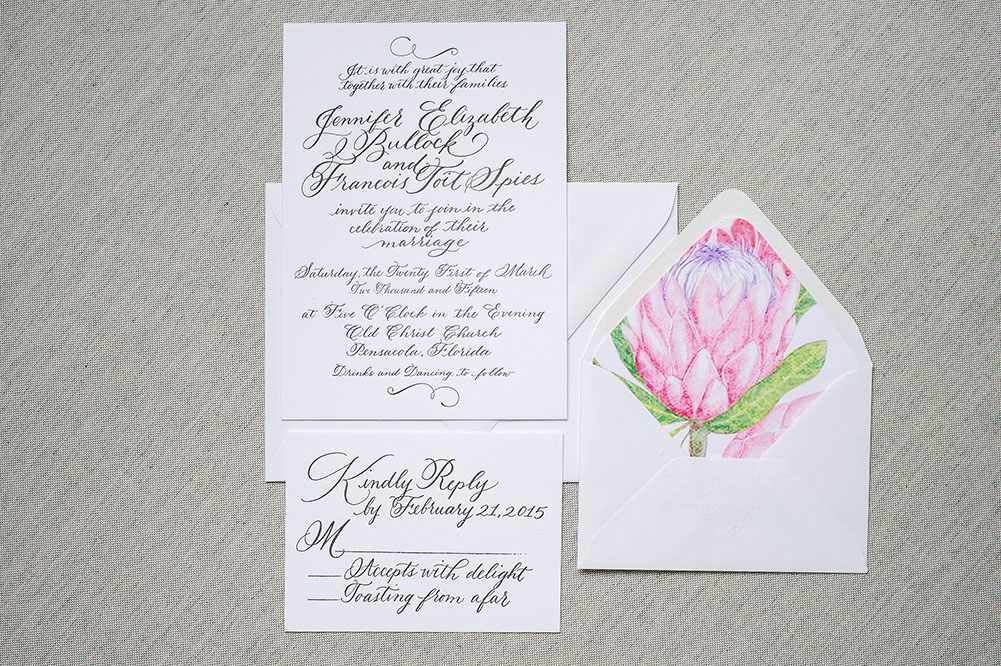 It is with great joy that
together with their families
Jennifer Elizabeth
Bullock
and
Francois Toit Spies
invite you to join in the
celebration of their
marriage
Saturday, the Twenty First of March
Two Thousand and Fifteen
at Five O'Clock in the Evening
Old Christ Church
Pensacola, Florida
Drinks and Dancing to follow
Kindly Reply
by February 21, 2015
M
Accepts with delight
Toasting from afar